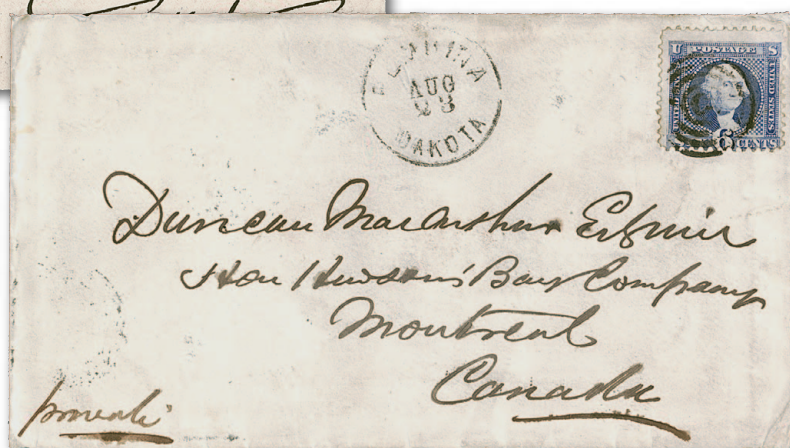 PEMBINA
AUG
23
DAKOTA
U POSTAGE S
UNITED STATES
6 CENTS
Duncan MacArthur Esquir
Hon Hudson's Bay Company
Montreal
Canada